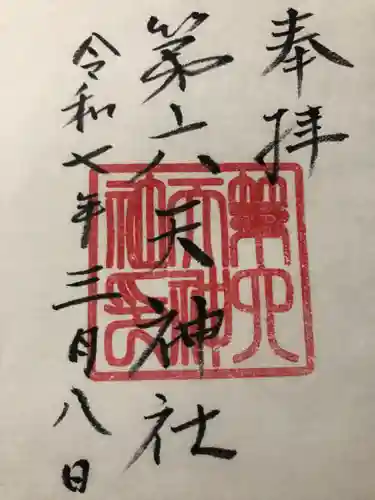 奉拝
第六天神社
令和七年三月八日
第六天神社印